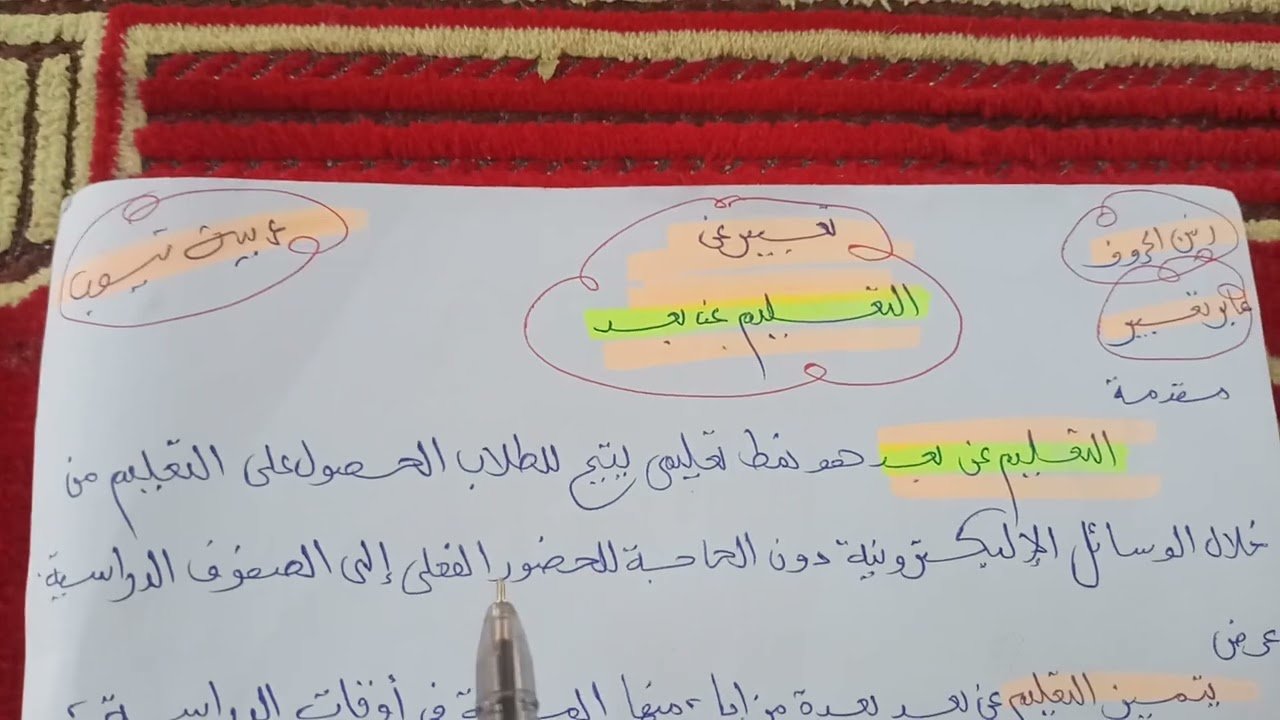 رنين الحروف
تعبير عن
عربيت تيوب
عابر تعبير
التعليم عن بعد
مقدمة
التعليم عن بعد هو نمط تعليمي يتيح للطلاب الحصول على التعليم من
خلال الوسائل الإليكترونية دون الحاجة للحضور الفعلى إلى الصفوف الدراسية.
عرض
يتميز التعليم عن بعد بعدة مزايا، منها في أوقات الدراسة،